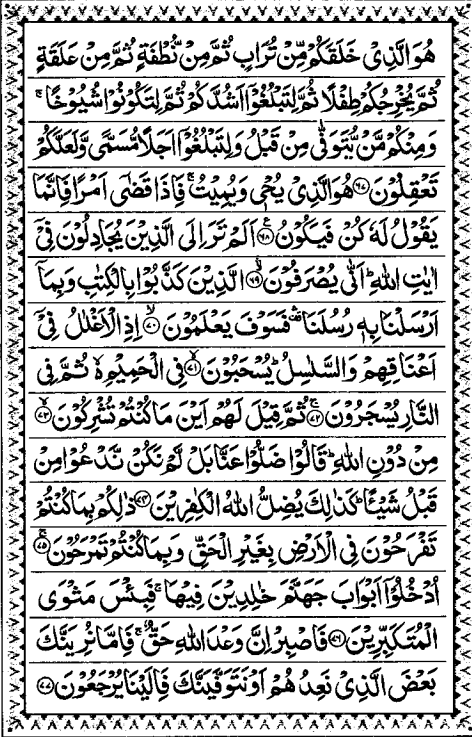 هُوَ الَّذِىْ خَلَقَكُمْ مِّنْ تُرَابٍ ثُمَّ مِنْ نُّطْفَةٍ ثُمَّ مِنْ عَلَقَةٍ
ثُمَّ يُخْرِجُكُمْ طِفْلًا ثُمَّ لِتَبْلُغُوْۤا اَشُدَّكُمْ ثُمَّ لِتَكُوْنُوْا شُيُوْخًا ۚ
وَمِنْكُمْ مَّنْ يُّتَوَفّٰى مِنْ قَبْلُ وَلِتَبْلُغُوْۤا اَجَلًا مُّسَمًّى وَّلَعَلَّكُمْ
تَعْقِلُوْنَ ﴿۶۷﴾ هُوَ الَّذِىْ يُحْىٖ وَيُمِيْتُ ۚ فَاِذَا قَضٰۤى اَمْرًا فَاِنَّمَا
يَقُوْلُ لَهٗ كُنْ فَيَكُوْنُ ﴿۶۸﴾ اَلَمْ تَرَ اِلَى الَّذِيْنَ يُجَادِلُوْنَ فِىْۤ
اٰيٰتِ اللّٰهِ ؕ اَنّٰى يُصْرَفُوْنَ ﴿۶۹﴾ الَّذِيْنَ كَذَّبُوْا بِالْكِتٰبِ وَبِمَاۤ
اَرْسَلْنَا بِهٖ رُسُلَنَا ۛ فَسَوْفَ يَعْلَمُوْنَ ﴿۷۰﴾ اِذِ الْاَغْلٰلُ فِىْۤ
اَعْنَاقِهِمْ وَالسَّلٰسِلُ ؕ يُسْحَبُوْنَ ﴿۷۱﴾ فِى الْحَمِيْمِ ۙ ثُمَّ فِى
النَّارِ يُسْجَرُوْنَ ﴿۷۲﴾ ثُمَّ قِيْلَ لَهُمْ اَيْنَ مَا كُنْتُمْ تُشْرِكُوْنَ ﴿۷۳﴾
مِنْ دُوْنِ اللّٰهِ ؕ قَالُوْا ضَلُّوْا عَنَّا بَلْ لَّمْ نَكُنْ نَّدْعُوْا مِنْ
قَبْلُ شَيْئًا ؕ كَذٰلِكَ يُضِلُّ اللّٰهُ الْكٰفِرِيْنَ ﴿۷۴﴾ ذٰلِكُمْ بِمَا كُنْتُمْ
تَفْرَحُوْنَ فِى الْاَرْضِ بِغَيْرِ الْحَقِّ وَبِمَا كُنْتُمْ تَمْرَحُوْنَ ﴿۷۵﴾
اُدْخُلُوْۤا اَبْوَابَ جَهَنَّمَ خٰلِدِيْنَ فِيْهَا ۚ فَبِئْسَ مَثْوَى
الْمُتَكَبِّرِيْنَ ﴿۷۶﴾ فَاصْبِرْ اِنَّ وَعْدَ اللّٰهِ حَقٌّ ۚ فَاِمَّا نُرِيَنَّكَ
بَعْضَ الَّذِىْ نَعِدُهُمْ اَوْ نَتَوَفَّيَنَّكَ فَاِلَيْنَا يُرْجَعُوْنَ ﴿۷۷﴾